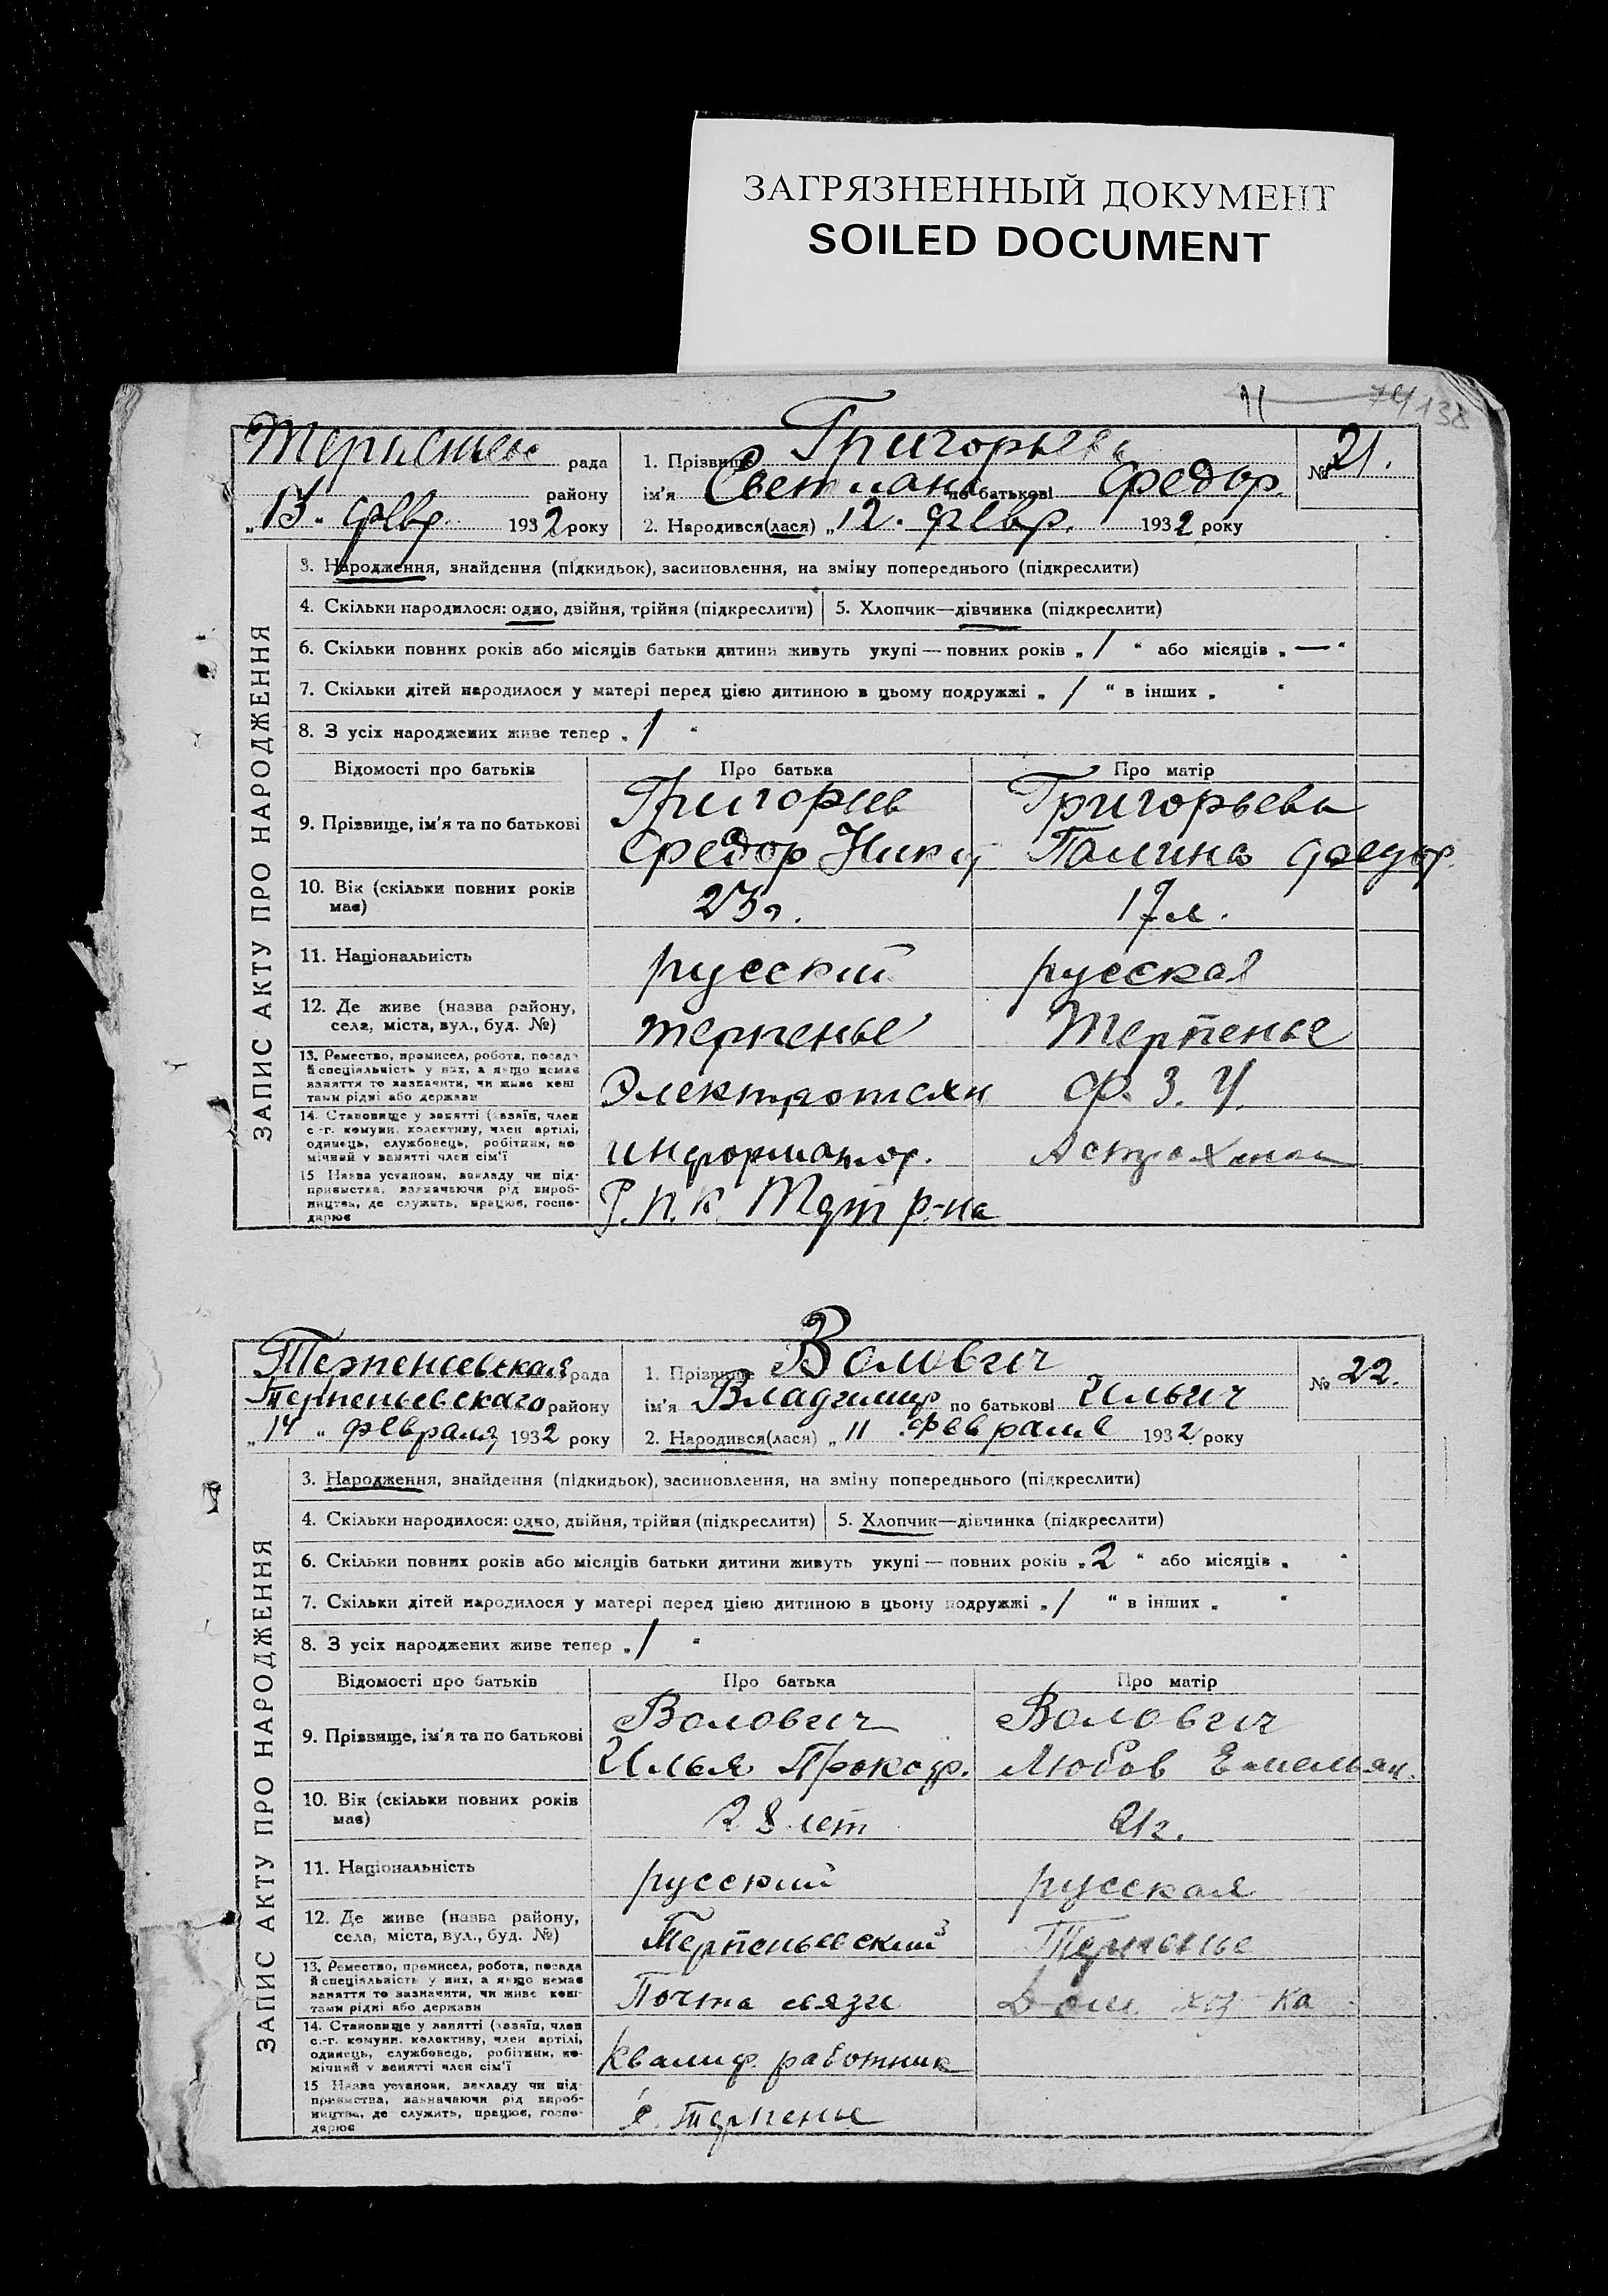 ЗАГРЯЗНЕННЫЙ ДОКУМЕНТ
SOILED DOCUMENT
138
рада
району
„13“ февр. 1932 року
1. Прізвище Григорьева
ім'я Светлана по батькові Федор.
2. Народився(лася) „12. февр. 1932 року
№ 21.
ЗАПИС АКТУ ПРО НАРОДЖЕННЯ
3. Народження, знайдення (підкидьок), засиновлення, на зміну попереднього (підкреслити)
4. Скільки народилося: одно, двійня, трійня (підкреслити)
5. Хлопчик—дівчинка (підкреслити)
6. Скільки повних років або місяців батьки дитини живуть укупі — повних років „ 1 “ або місяців „ — “
7. Скільки дітей народилося у матері перед цією дитиною в цьому подружжі „ 1 “ в інших „ “
8. З усіх народжених живе тепер „ 1 “
Відомості про батьків Про батька Про матір
9. Прізвище, ім'я та по батькові
Григорьев Григорьева
Федор Никит Галина Федор.
10. Вік (скільки повних років має) 23 г. 17 л.
11. Національність русский русская
12. Де живе (назва району, села, міста, вул., буд. №) терпенье Терпенье
13. Ремество, промисел, робота, посада й спеціяльність у них, а якщо немає заняття то зазначити, чи живе коштами рідні або держави
Электротехн Ф. З. У.
14. Становище у занятті (хазяїн, член с.-г. комуни, колективу, член артілі, одинець, службовець, робітник, помічний у занятті член сім'ї
информатор.
15 Назва установи, закладу чи підприємства, зазначаючи рід виробництва, де служить, працює, господарює
Р.П.К. р-на
Терпеньевская рада
Терпеньевскаго району
„14“ февраля 1932 року
1. Прізвище Волович
ім'я Владимир по батькові Ильич
2. Народився(лася) „11 февраля 1932 року
№ 22.
ЗАПИС АКТУ ПРО НАРОДЖЕННЯ
3. Народження, знайдення (підкидьок), засиновлення, на зміну попереднього (підкреслити)
4. Скільки народилося: одно, двійня, трійня (підкреслити)
5. Хлопчик—дівчинка (підкреслити)
6. Скільки повних років або місяців батьки дитини живуть укупі — повних років „ 2 “ або місяців „ “
7. Скільки дітей народилося у матері перед цією дитиною в цьому подружжі „ 1 “ в інших „ “
8. З усіх народжених живе тепер „ 1 “
Відомості про батьків Про батька Про матір
9. Прізвище, ім'я та по батькові
Волович Волович
Илья Прокоф. Любов Емельян.
10. Вік (скільки повних років має) 28 лет 21 г.
11. Національність русский русская
12. Де живе (назва району, села, міста, вул., буд. №) Терпеньевский Терпенье
13. Ремество, промисел, робота, посада й спеціяльність у них, а якщо немає заняття то зазначити, чи живе коштами рідні або держави
Почта связи Дом. хоз-ка
14. Становище у занятті (хазяїн, член с.-г. комуни, колективу, член артілі, одинець, службовець, робітник, помічний у занятті член сім'ї
Квалиф. работник
15 Назва установи, закладу чи підприємства, зазначаючи рід виробництва, де служить, працює, господарює
с. Терпенье